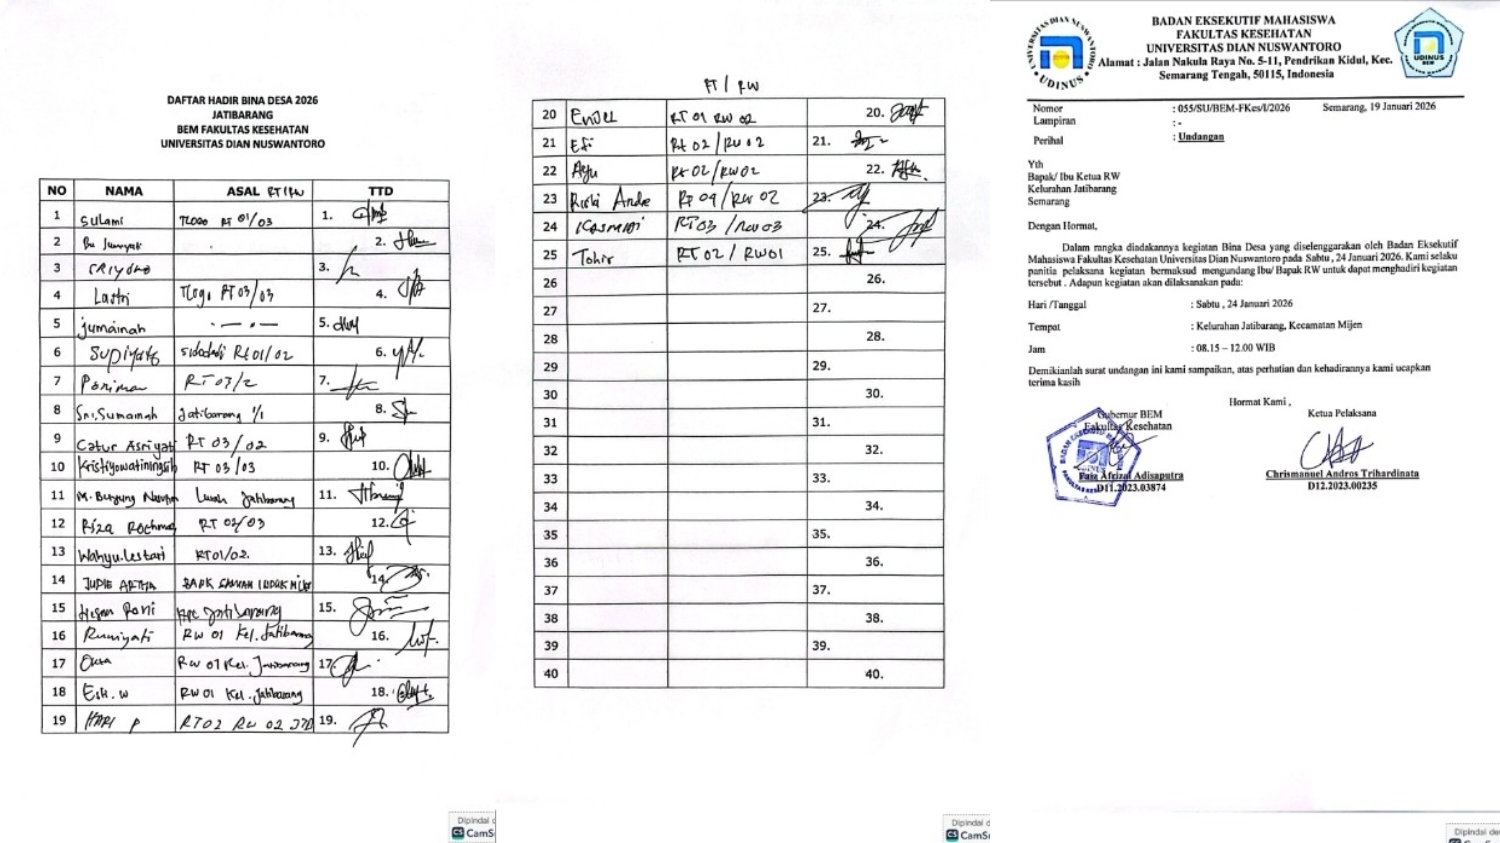 DAFTAR HADIR BINA DESA 2026
JATIBARANG
BEM FAKULTAS KESEHATAN
UNIVERSITAS DIAN NUSWANTORO
NO NAMA ASAL RT/RW TTD
1 Sulami Tlogo RT 01/03 1.
2 Bu 2.
3 SRIYONO 3.
4 Lastri Tlogo RT 03/03 4.
5 jumainah 5.
6 Supiyato Rt 01/02 6.
7 Poniman RT 03/2 7.
8 Sri.Sumainah Jatibarang 1/1 8.
9 Catur Asriyati RT 03/02 9.
10 Kristiyowatiningsih RT 03/03 10.
11 M. Lurah Jatibarang 11.
12 Riza Rochma RT 02/03 12.
13 Wahyu.Lestari RT01/02. 13.
14 14.
15 Roni Jatibarang 15.
16 Rumiyati RW 01 Kel.Jatibarang 16.
17 Okta RW 01 Kel. Jatibarang 17.
18 Esti.w RW 01 Kel.Jatibarang 18.
19 HARI P RT02 RW 02 JTB 19.
Dipindai
CS CamS
RT / RW
20 Endu RT 01 RW 02 20.
21 Efi Rt 02/RW 02 21.
22 Ayu Rt 02/RW02 22.
23 Riski Andre RT 04/RW 02 23.
24 Kasmidi RT03 /RW 03 24.
25 Tohir RT 02 / RW01 25.
26 26.
27 27.
28 28.
29 29.
30 30.
31 31.
32 32.
33 33.
34 34.
35 35.
36 36.
37 37.
38 38.
39 39.
40 40.
Dipindai d
CS CamS
BADAN EKSEKUTIF MAHASISWA
FAKULTAS KESEHATAN
UNIVERSITAS DIAN NUSWANTORO
Alamat : Jalan Nakula Raya No. 5-11, Pendrikan Kidul, Kec.
Semarang Tengah, 50115, Indonesia
UNIVERSITAS DIAN NUSWANTORO
UDINUS
UDINUS
BEM
Nomor : 055/SU/BEM-FKes/I/2026 Semarang, 19 Januari 2026
Lampiran : -
Perihal : Undangan
Yth
Bapak/ Ibu Ketua RW
Kelurahan Jatibarang
Semarang
Dengan Hormat,
Dalam rangka diadakannya kegiatan Bina Desa yang diselenggarakan oleh Badan Eksekutif
Mahasiswa Fakultas Kesehatan Universitas Dian Nuswantoro pada Sabtu , 24 Januari 2026. Kami selaku
panitia pelaksana kegiatan bermaksud mengundang Ibu/ Bapak RW untuk dapat menghadiri kegiatan
tersebut . Adapun kegiatan akan dilaksanakan pada:
Hari /Tanggal : Sabtu , 24 Januari 2026
Tempat : Kelurahan Jatibarang, Kecamatan Mijen
Jam : 08.15 – 12.00 WIB
Demikianlah surat undangan ini kami sampaikan, atas perhatian dan kehadirannya kami ucapkan
terima kasih
Hormat Kami ,
Gubernur BEM Ketua Pelaksana
Fakultas Kesehatan
Faiz Afrizal Adisaputra Chrismanuel Andros Trihardinata
D11.2023.03874 D12.2023.00235
Dipindai de
CS CamS